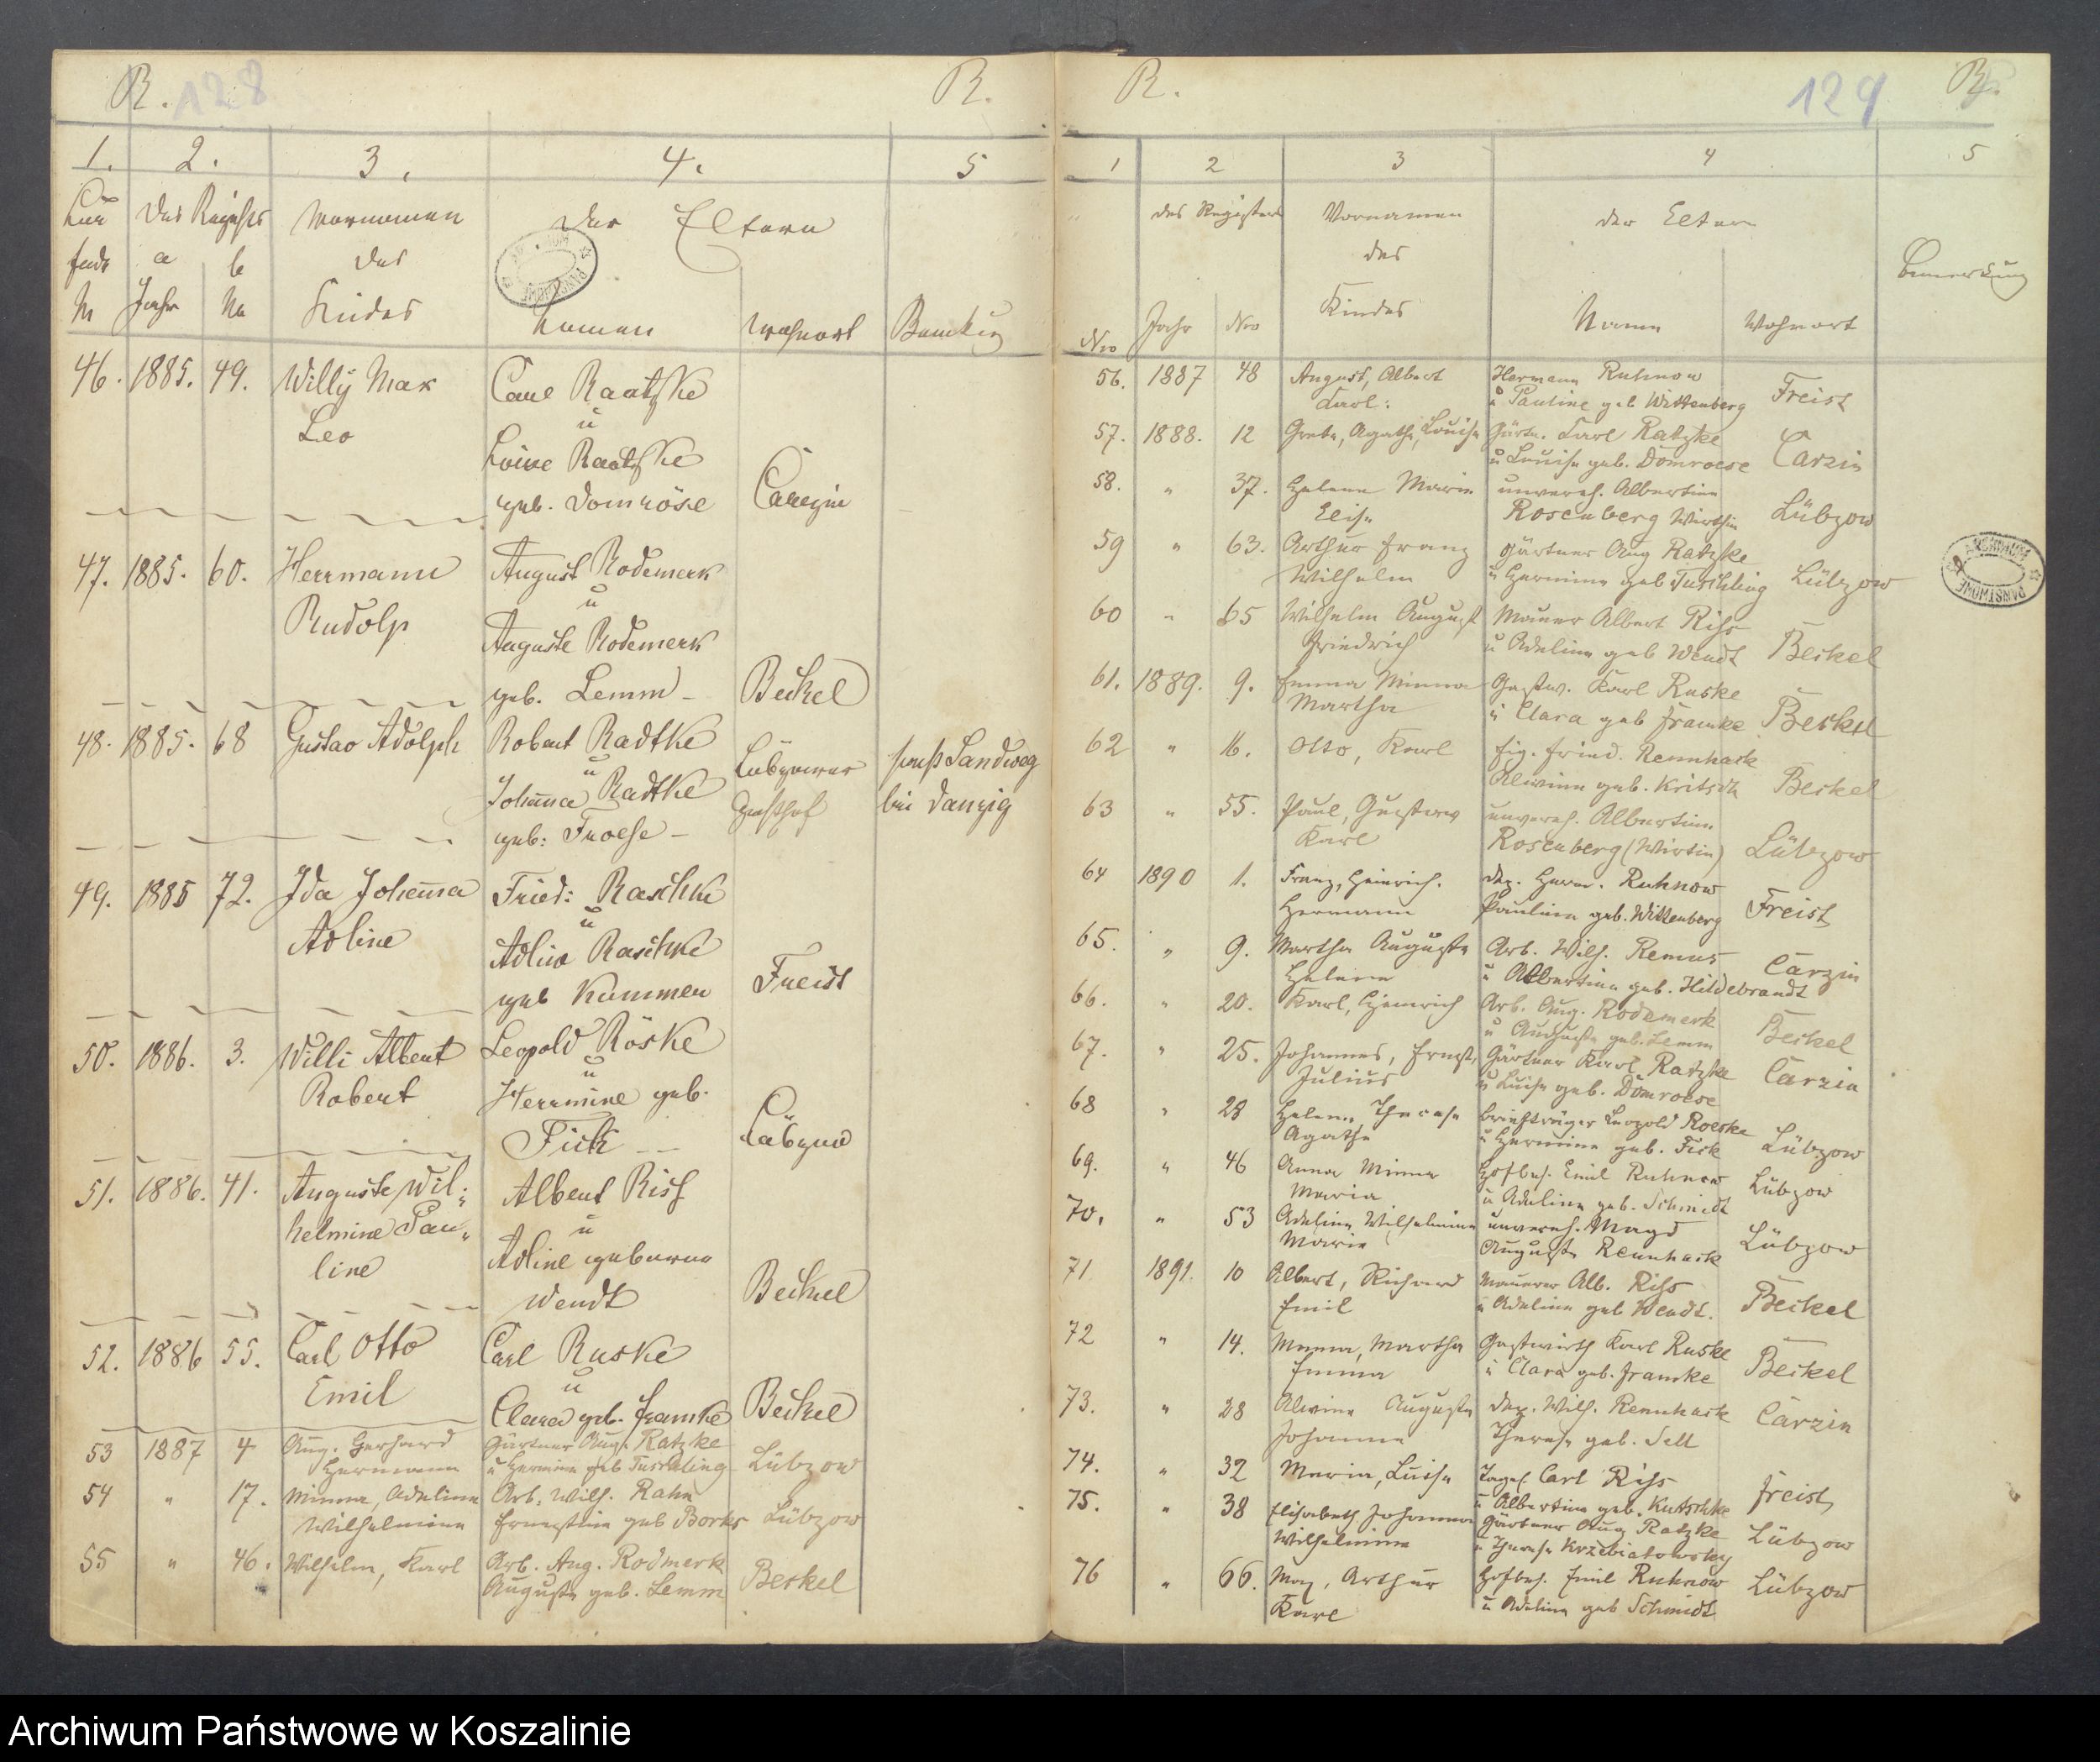 R. 128 R.
1. 2. 3. 4. 5
Lau Des Registers Vornamen Der Eltern
fende a b des
No Jahr No Kindes Namen Wohnort Bemerkung
46. 1885. 49. Willy Max Carl Raatzke
Leo u
Loise Raatzke
geb. Domröse Carzin
47. 1885. 60. Herrmann August Rodemerk
Rudolp u
Auguste Rodemerk
geb. Lemm - Beckel
48. 1885. 68 Gustav Adolph Robert Radtke Lübzower Landweg
u
Johanna Radtke Gasthof bei Danzig
geb: Froese -
49. 1885 72. Ida Johanna Fried: Raschke
Adline u
Adline Raschke
geb Kummer Freist
50. 1886. 3. Willi Albert Leopold Röske
Robert u
Herrmine geb.
Fick - - Lübzow
51. 1886. 41. Auguste Wil- Albert Riss
helmine Pau- u
line Adline geborne
Wendt Beckel
52. 1886 55. Carl Otto Carl Ruske
Emil u
Clara geb. Framke Beckel
53 1887 4 Aug. Gerhard Gärtner Aug. Ratzke
Hermann u Hermine geb Tuschling Lübzow
54 " 17. Minna, Adeline Arb. Wilh. Rahn
Wilhelmine Ernestine geb Bork Lübzow
55 " 46. Wilhelm, Karl Arb. Aug. Rodmerk
Auguste geb. Lemm Beckel
R. 129 R.
1 2 3 4 5
des Registers Vornamen der Eltern
des Bemerkung
No Jahr No Kindes Namen Wohnort
56. 1887 48 August, Albert Hermann Ruhnow
Karl. u Pauline geb Wittenberg Freist
57. 1888. 12 Grete, Agathe, Louise Gärtn. Karl Ratzke
u Louise geb. Domroese Carzin
58. " 37. Helene Marie unvereh. Albertine
Elise Rosenberg Wirthin Lübzow
59 " 63. Arthur Franz Gärtner Aug Ratzke
Wilhelm u Hermine geb Tuschling Lübzow
60 " 65 Wilhelm August Maurer Albert Riss
Friedrich u Adeline geb Wendt Beckel
61. 1889. 9. Emma Minna Gastw. Karl Ruske
Martha u Clara geb Framke Beckel
62 " 16. Otto, Karl Eig. Fried. Rennhack
Alwine geb. Kritsch Beckel
63 " 55. Paul, Gustav unvereh. Albertine
Karl Rosenberg (Wirtin) Lübzow
64 1890 1. Franz, Heinrich. Herm. Ruhnow
Hermann Pauline geb. Wittenberg Freist
65. " 9. Martha Auguste Arb. Wilh. Remus
Helene u Albertine geb. Hildebrandt Carzin
66. " 20. Karl, Heinrich Arb. Aug. Rodemerk
u Auguste geb. Lemm Beckel
67. " 25. Johannes, Ernst, Gärtner Karl Ratzke
Julius u Luise geb. Domroese Carzin
68 " 28 Helene Therese Briefträger Leopold Roeske
Agathe u Hermine geb. Fick Lübzow
69. " 46 Anna Minna Hofbes. Emil Ruhnow
Maria u Adeline geb. Schmidt Lübzow
70. " 53 Adeline Wilhelmine unvereh. Magd
Marie Auguste Rennhack Lübzow
71 1891. 10 Albert, Richard Maurer Alb. Riss
Emil u Adeline geb Wendt. Beckel
72 " 14. Minna, Martha Gastwirth Karl Ruske
Emma u Clara geb. Framke Beckel
73. " 28 Alwine Auguste Wilh. Rennhack
Johanna Therese geb. Sell Carzin
74. " 32 Maria, Luise Tagel. Carl Riss
u Albertine geb. Kutschke Freist
75. " 38 Elisabeth Johanna Gärtner Aug Ratzke
Wilhelmine u Therese Krzebiatowsky Lübzow
76 " 66. Max, Arthur Hofbes. Emil Ruhnow
Karl u Adeline geb Schmidt Lübzow
Archiwum Państwowe w Koszalinie